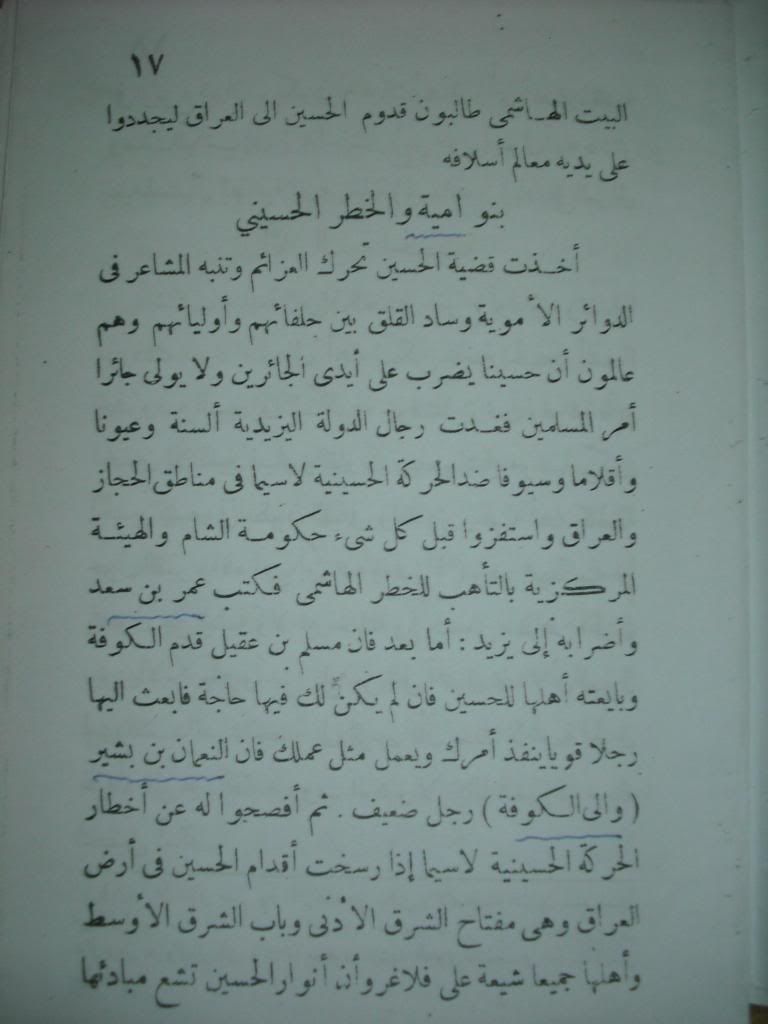 ١٧
البيت الهاشمى طالبون قدوم الحسين الى العراق ليجددوا
على يديه معالم أسلافه
بنو امية والخطر الحسيني
أخذت قضية الحسين تحرك العزائم وتنبه المشاعر فى
الدوائر الأموية وساد القلق بين حلفائهم وأوليائهم وهم
عالمون أن حسينا يضرب على أيدى الجائرين ولا يولى جائرا
أمر المسلمين فغدت رجال الدولة اليزيدية ألسنة وعيونا
وأقلاما وسيوفا ضد الحركة الحسينية لاسيما فى مناطق الحجاز
والعراق واستفزوا قبل كل شىء حكومة الشام والهيئة
المركزية بالتأهب للخطر الهاشمى فكتب عمر بن سعد
وأضرابه إلى يزيد : أما بعد فان مسلم بن عقيل قدم الكوفة
وبايعته أهلها للحسين فان لم يكن لك فيها حاجة فابعث اليها
رجلا قويا ينفذ أمرك ويعمل مثل عملك فان النعمان بن بشير
( والى الكوفة ) رجل ضعيف . ثم أفصحوا له عن أخطار
الحركة الحسينية لاسيما إذا رسخت أقدام الحسين فى أرض
العراق وهى مفتاح الشرق الأدنى وباب الشرق الأوسط
وأهلها جميعا شيعة على فلاغرو أن أنوار الحسين تشع مبادئها